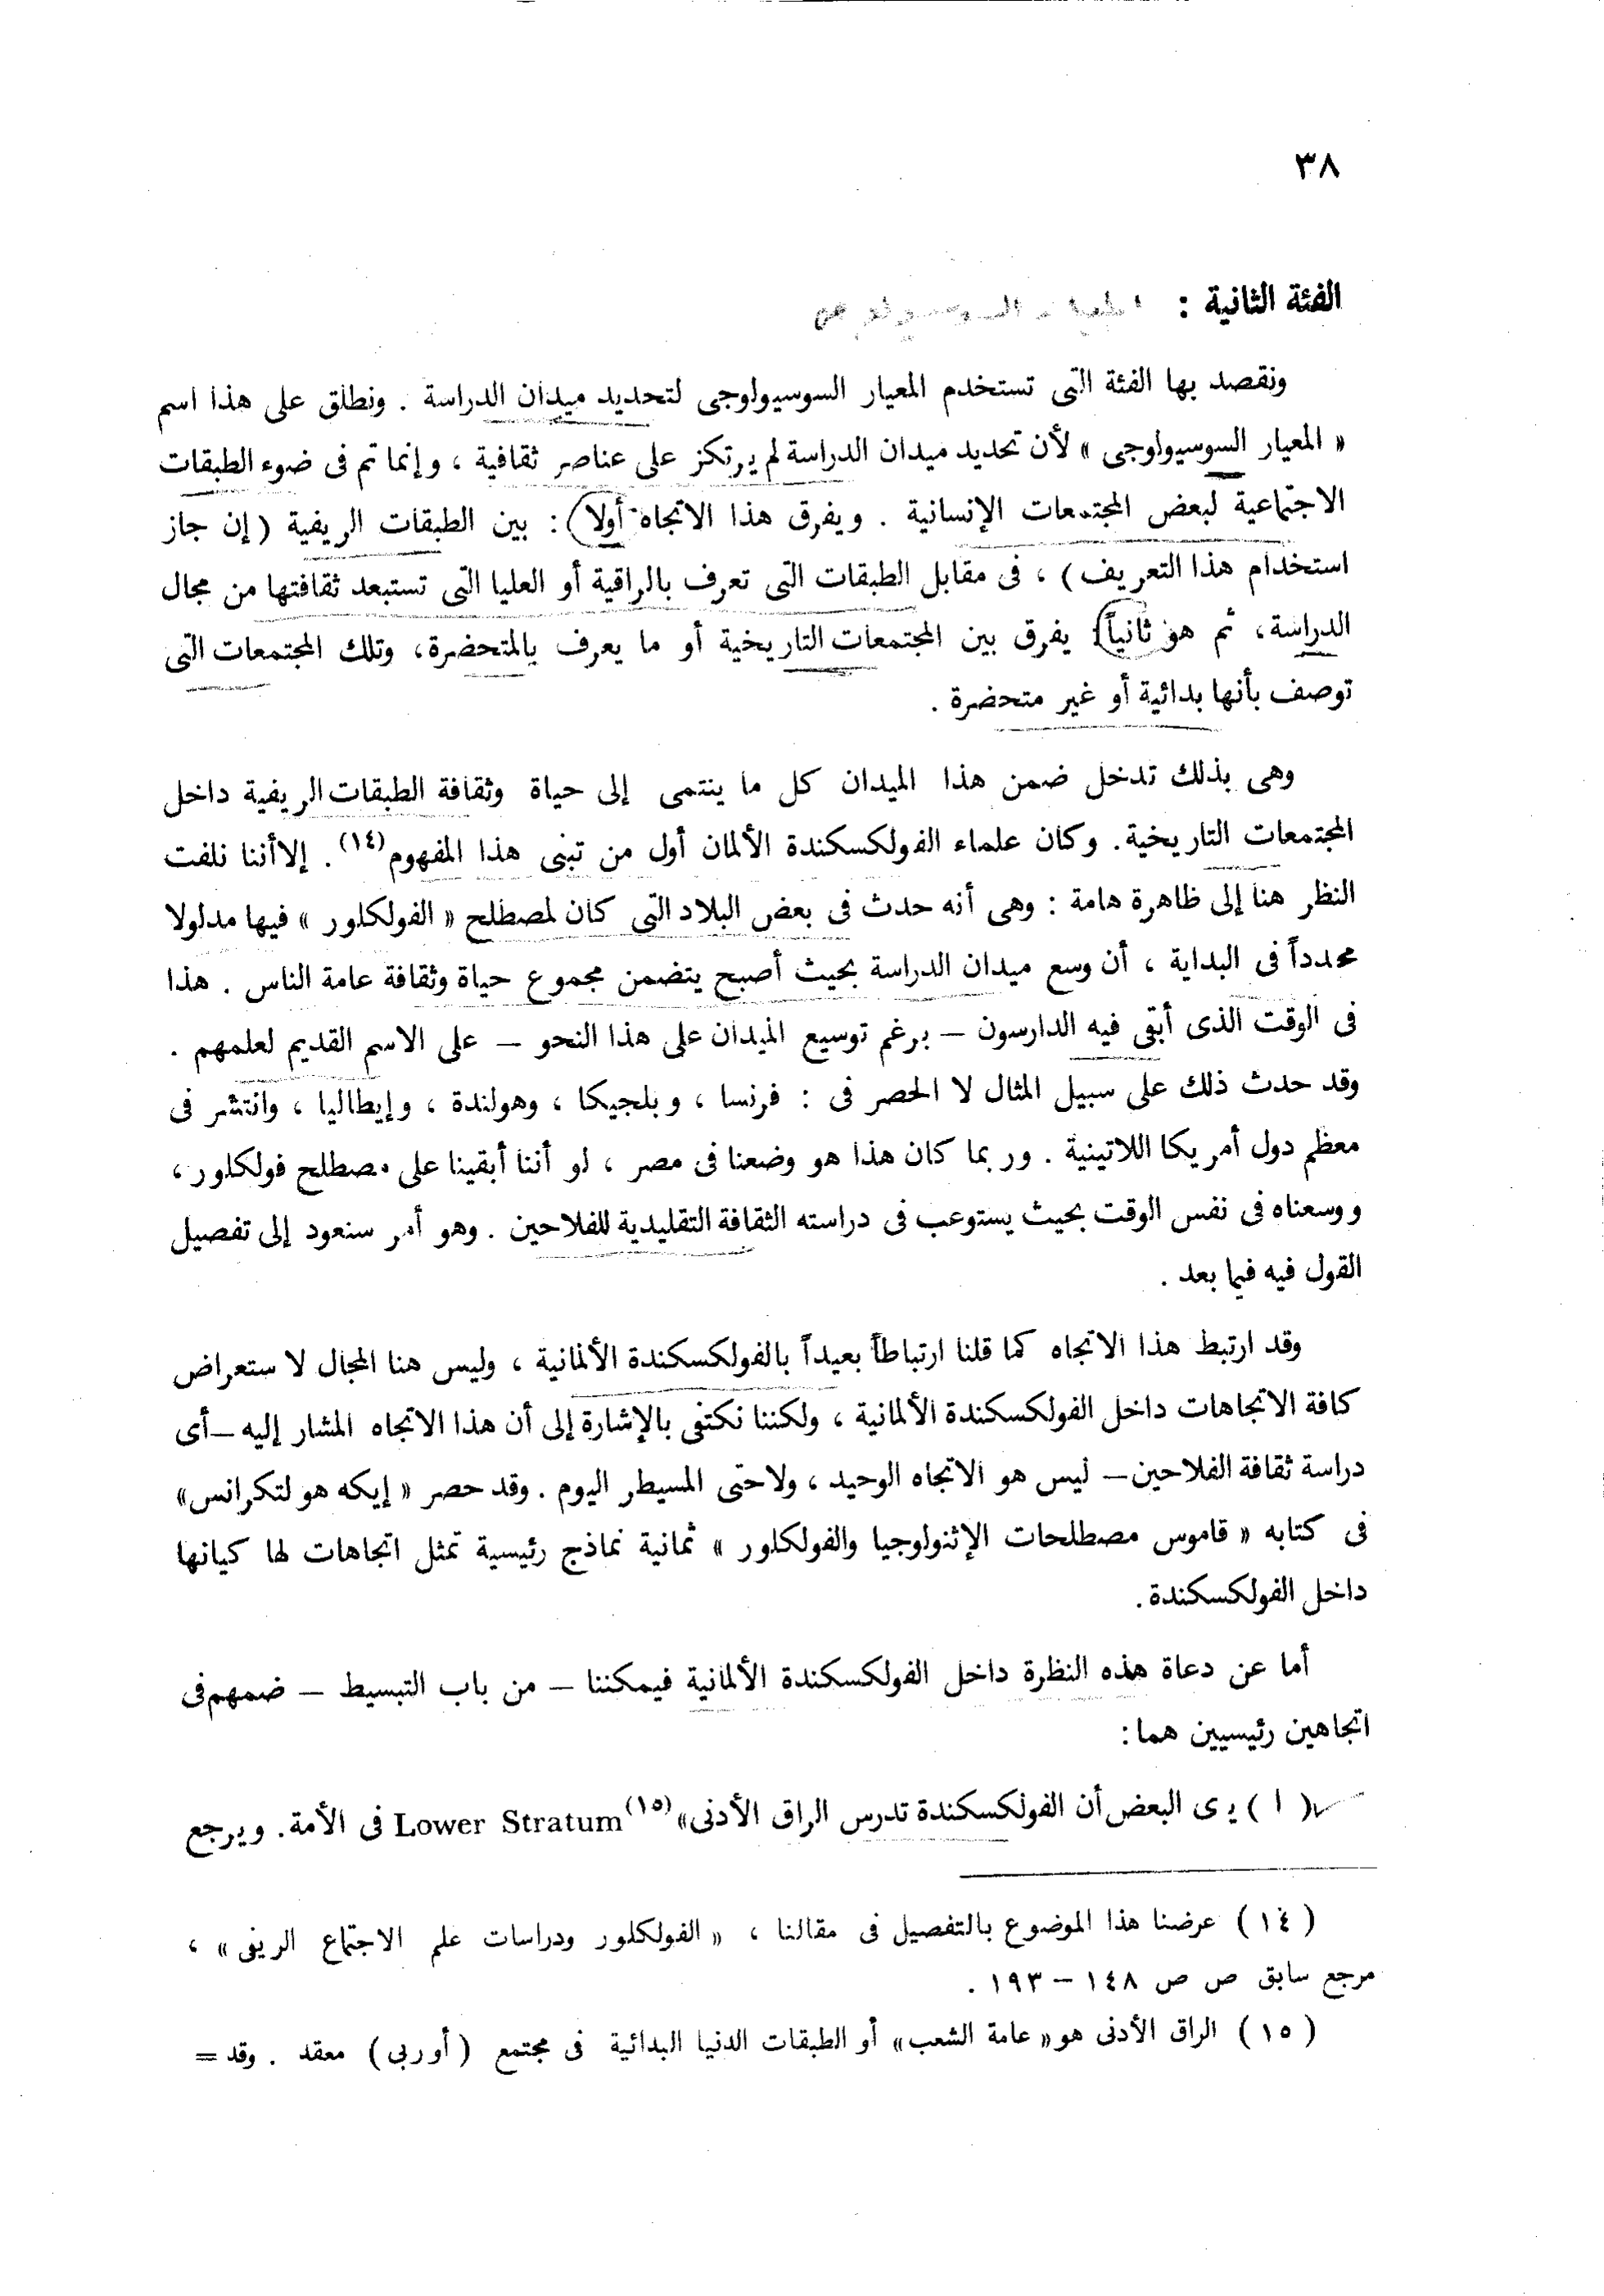 ٣٨
الفئة الثانية :
ونقصد بها الفئة التى تستخدم المعيار السوسيولوجى لتحديد ميدان الدراسة . ونطلق على هذا اسم
« المعيار السوسيولوجى » لأن تحديد ميدان الدراسة لم يرتكز على عناصر ثقافية ، وإنما تم فى ضوء الطبقات
الاجتماعية لبعض المجتمعات الإنسانية . ويفرق هذا الاتجاه أولا : بين الطبقات الريفية ( إن جاز
استخدام هذا التعريف ) ، فى مقابل الطبقات التى تعرف بالراقية أو العليا التى تستبعد ثقافتها من مجال
الدراسة، ثم هو ثانياً : يفرق بين المجتمعات التاريخية أو ما يعرف بالمتحضرة، وتلك المجتمعات التى
توصف بأنها بدائية أو غير متحضرة .
وهى بذلك تدخل ضمن هذا الميدان كل ما ينتمى إلى حياة وثقافة الطبقات الريفية داخل
المجتمعات التاريخية. وكان علماء الفولكسكندة الألمان أول من تبنى هذا المفهوم(١٤) . إلا أننا نلفت
النظر هنا إلى ظاهرة هامة : وهى أنه حدث فى بعض البلاد التى كان لمصطلح « الفولكلور » فيها مدلولا
محدداً فى البداية ، أن وسع ميدان الدراسة بحيث أصبح يتضمن مجموع حياة وثقافة عامة الناس . هذا
فى الوقت الذى أبقى فيه الدارسون – برغم توسيع الميدان على هذا النحو – على الاسم القديم لعلمهم .
وقد حدث ذلك على سبيل المثال لا الحصر فى : فرنسا ، وبلجيكا ، وهولندة ، وإيطاليا ، وانتشر فى
معظم دول أمريكا اللاتينية . وربما كان هذا هو وضعنا فى مصر ، لو أننا أبقينا على مصطلح فولكلور ،
ووسعناه فى نفس الوقت بحيث يستوعب فى دراسته الثقافة التقليدية للفلاحين . وهو أمر سنعود إلى تفصيل
القول فيه فيما بعد .
وقد ارتبط هذا الاتجاه كما قلنا ارتباطاً بعيداً بالفولكسكندة الألمانية ، وليس هنا المجال لاستعراض
كافة الاتجاهات داخل الفولكسكندة الألمانية ، ولكننا نكتفى بالإشارة إلى أن هذا الاتجاه المشار إليه – أى
دراسة ثقافة الفلاحين – ليس هو الاتجاه الوحيد ، ولا حتى المسيطر اليوم . وقد حصر « إيكه هولتكرانس»
فى كتابه « قاموس مصطلحات الإثنولوجيا والفولكلور » ثمانية نماذج رئيسية تمثل اتجاهات لها كيانها
داخل الفولكسكندة .
أما عن دعاة هذه النظرة داخل الفولكسكندة الألمانية فيمكننا – من باب التبسيط – ضمهم فى
اتجاهين رئيسيين هما :
( ا ) يرى البعض أن الفولكسكندة تدرس الراق الأدنى»(١٥) Lower Stratum فى الأمة. ويرجع
( ١٤ ) عرضنا هذا الموضوع بالتفصيل فى مقالنا ، « الفولكلور ودراسات علم الاجتماع الريفى » ،
مرجع سابق ص ص ١٤٨ – ١٩٣ .
( ١٥ ) الراق الأدنى هو « عامة الشعب» أو الطبقات الدنيا البدائية فى مجتمع ( أوربى ) معقد . وقد =